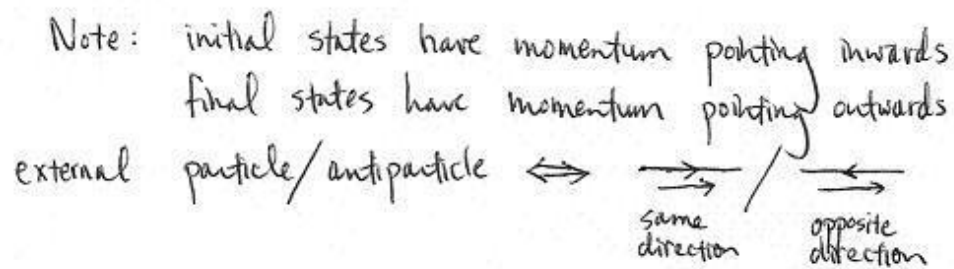 Note: initial states have momentum pointing inwards
final states have momentum pointing outwards
external particle/antiparticle ⇔ /
same direction
opposite direction